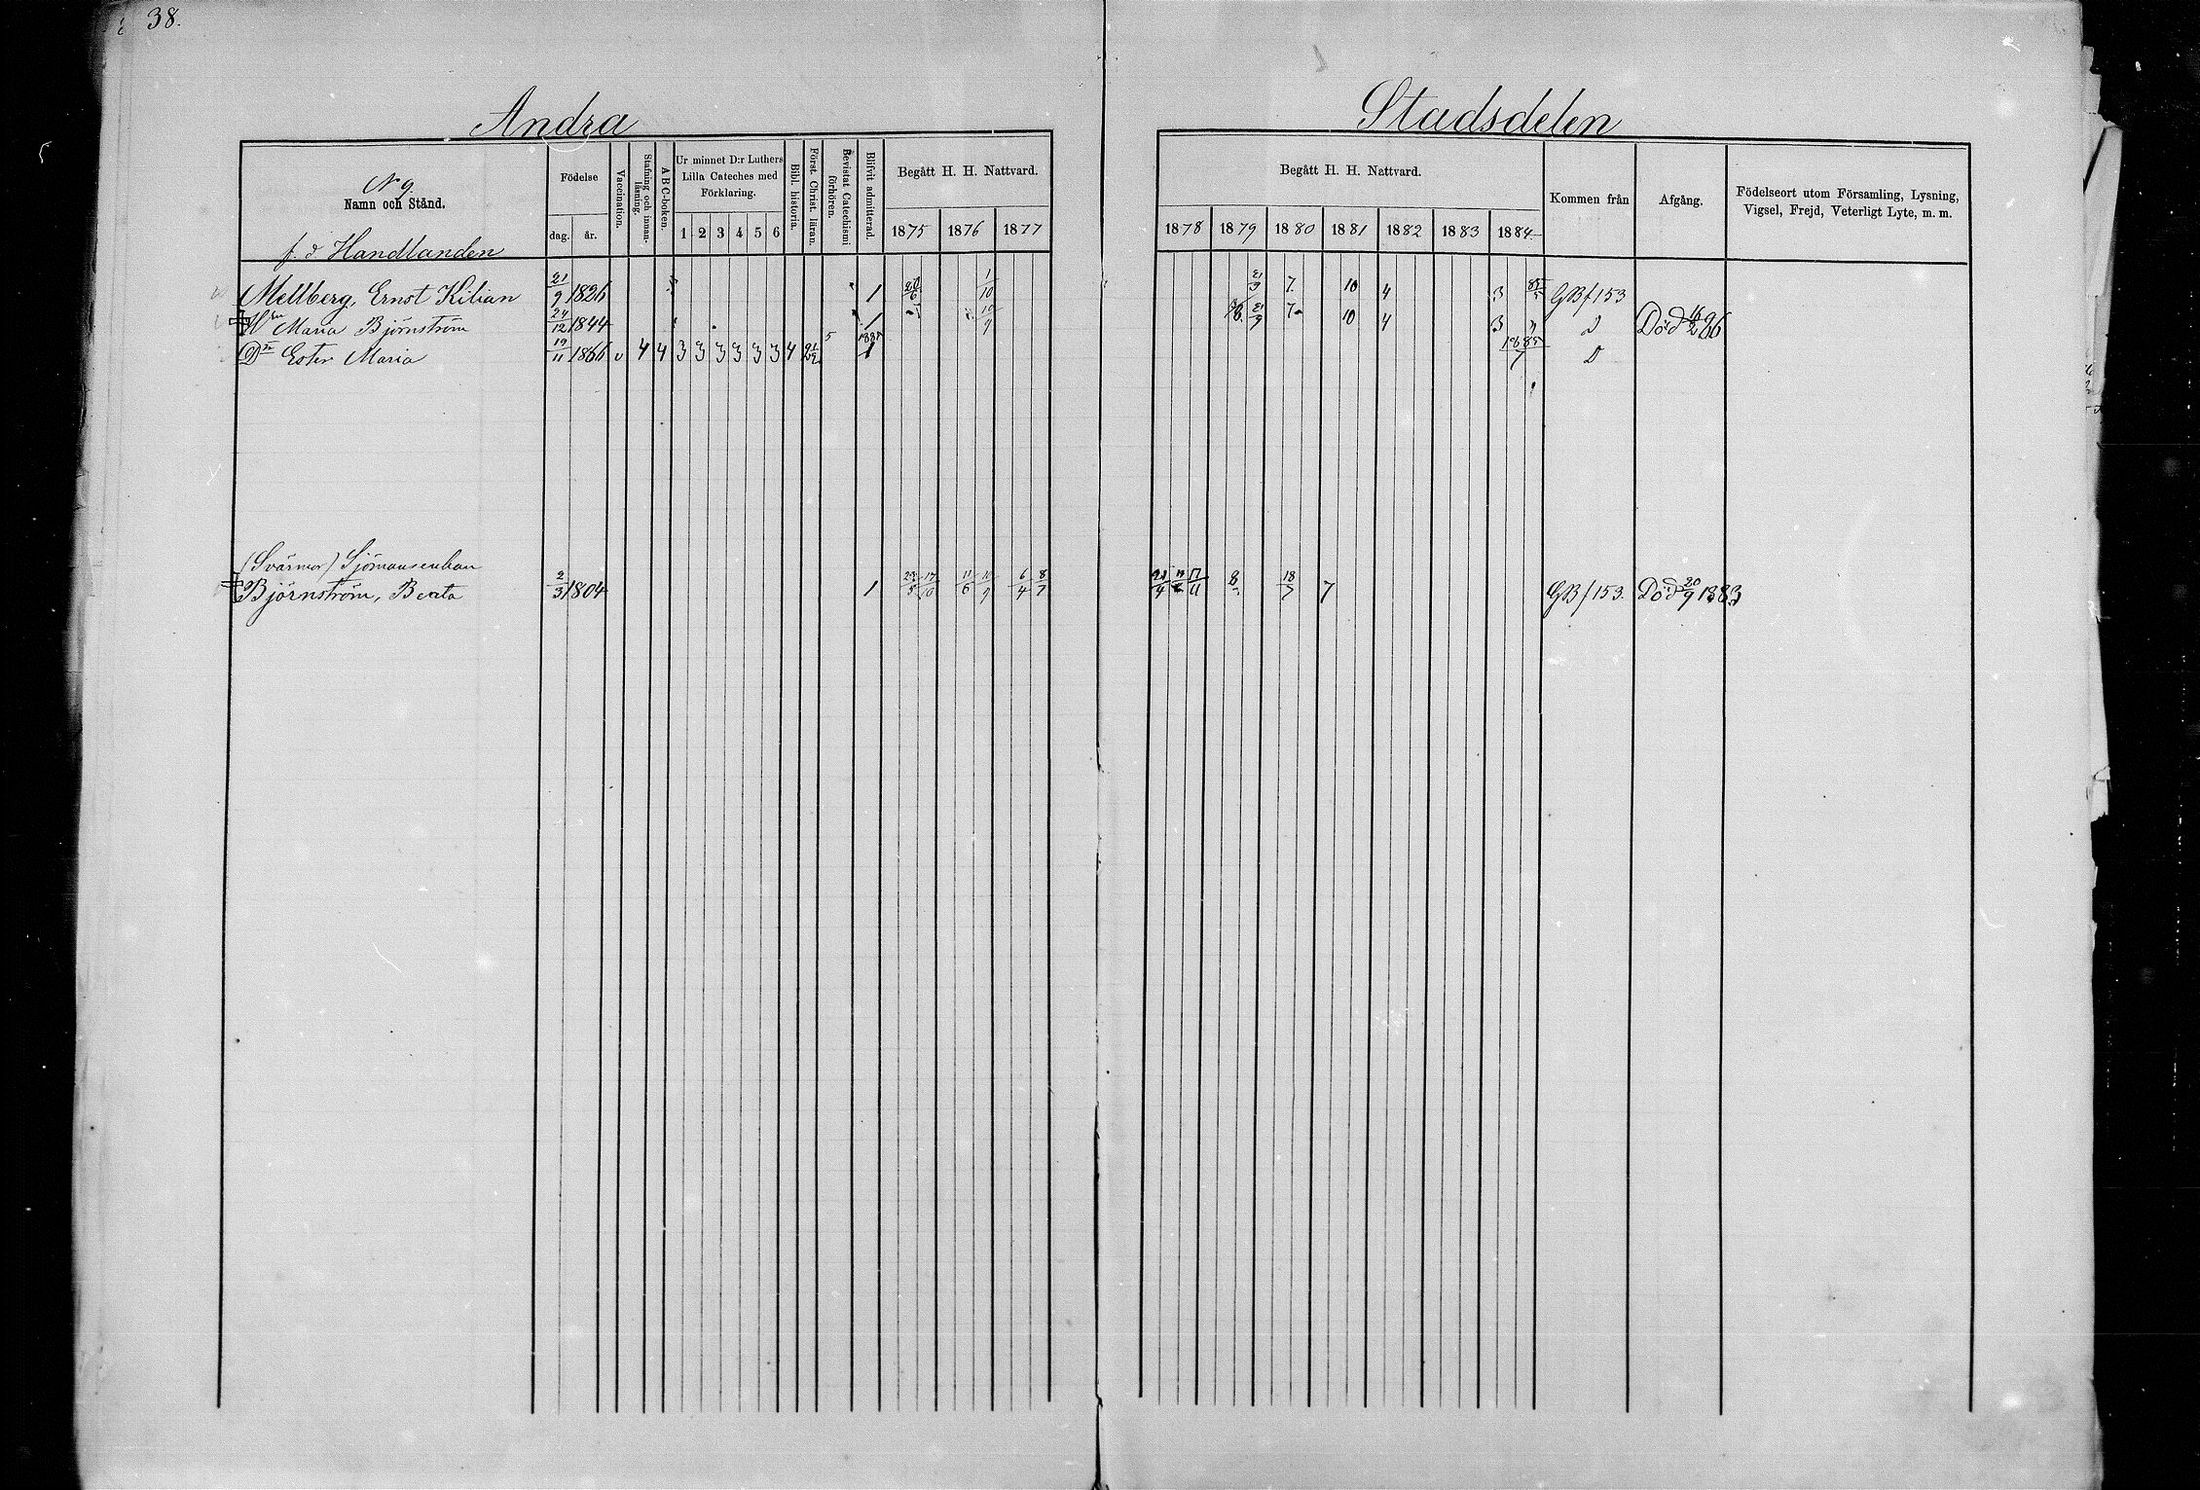 38.
Andra Stadsdelen
N 9.
Namn och Stånd.
Födelse
dag. år.
Vaccination.
Stafning och innanläsning.
A B C-boken.
Ur minnet D:r Luthers
Lilla Cateches med
Förklaring.
1 2 3 4 5 6
Bibl. historia.
Först. Christ. läran.
Bevistat Catechismi förhören.
Blifvit admitterad.
Begått H. H. Nattvard.
1875 1876 1877
Begått H. H. Nattvard.
1878 1879 1880 1881 1882 1883 1884
Kommen från
Afgång.
Födelseort utom Församling, Lysning,
Vigsel, Frejd, Veterligt Lyte, m. m.
f. d. Handlanden
Mellberg, Ernst Kilian 21/9 1826 1 20/6 1/10 21/3 7. 10 4 3 85/5 GB f 153
Hu Maria Björnström 24/12 1844 1 10/9 21/9 7 10 4 3 D Död 16/2 86
Dr Ester Maria 19/11 1866 v 4 4 3 3 3 3 3 3 4 2 1/2 5 1885 1 1885/7 D
(Svärmor) Sjömansenkan
Björnström, Beata 2/3 1804 1 23/5 17/10 11/6 10/9 6/4 8/7 17/11 8 18/7 7 GB f 153. Död 20/9 1883